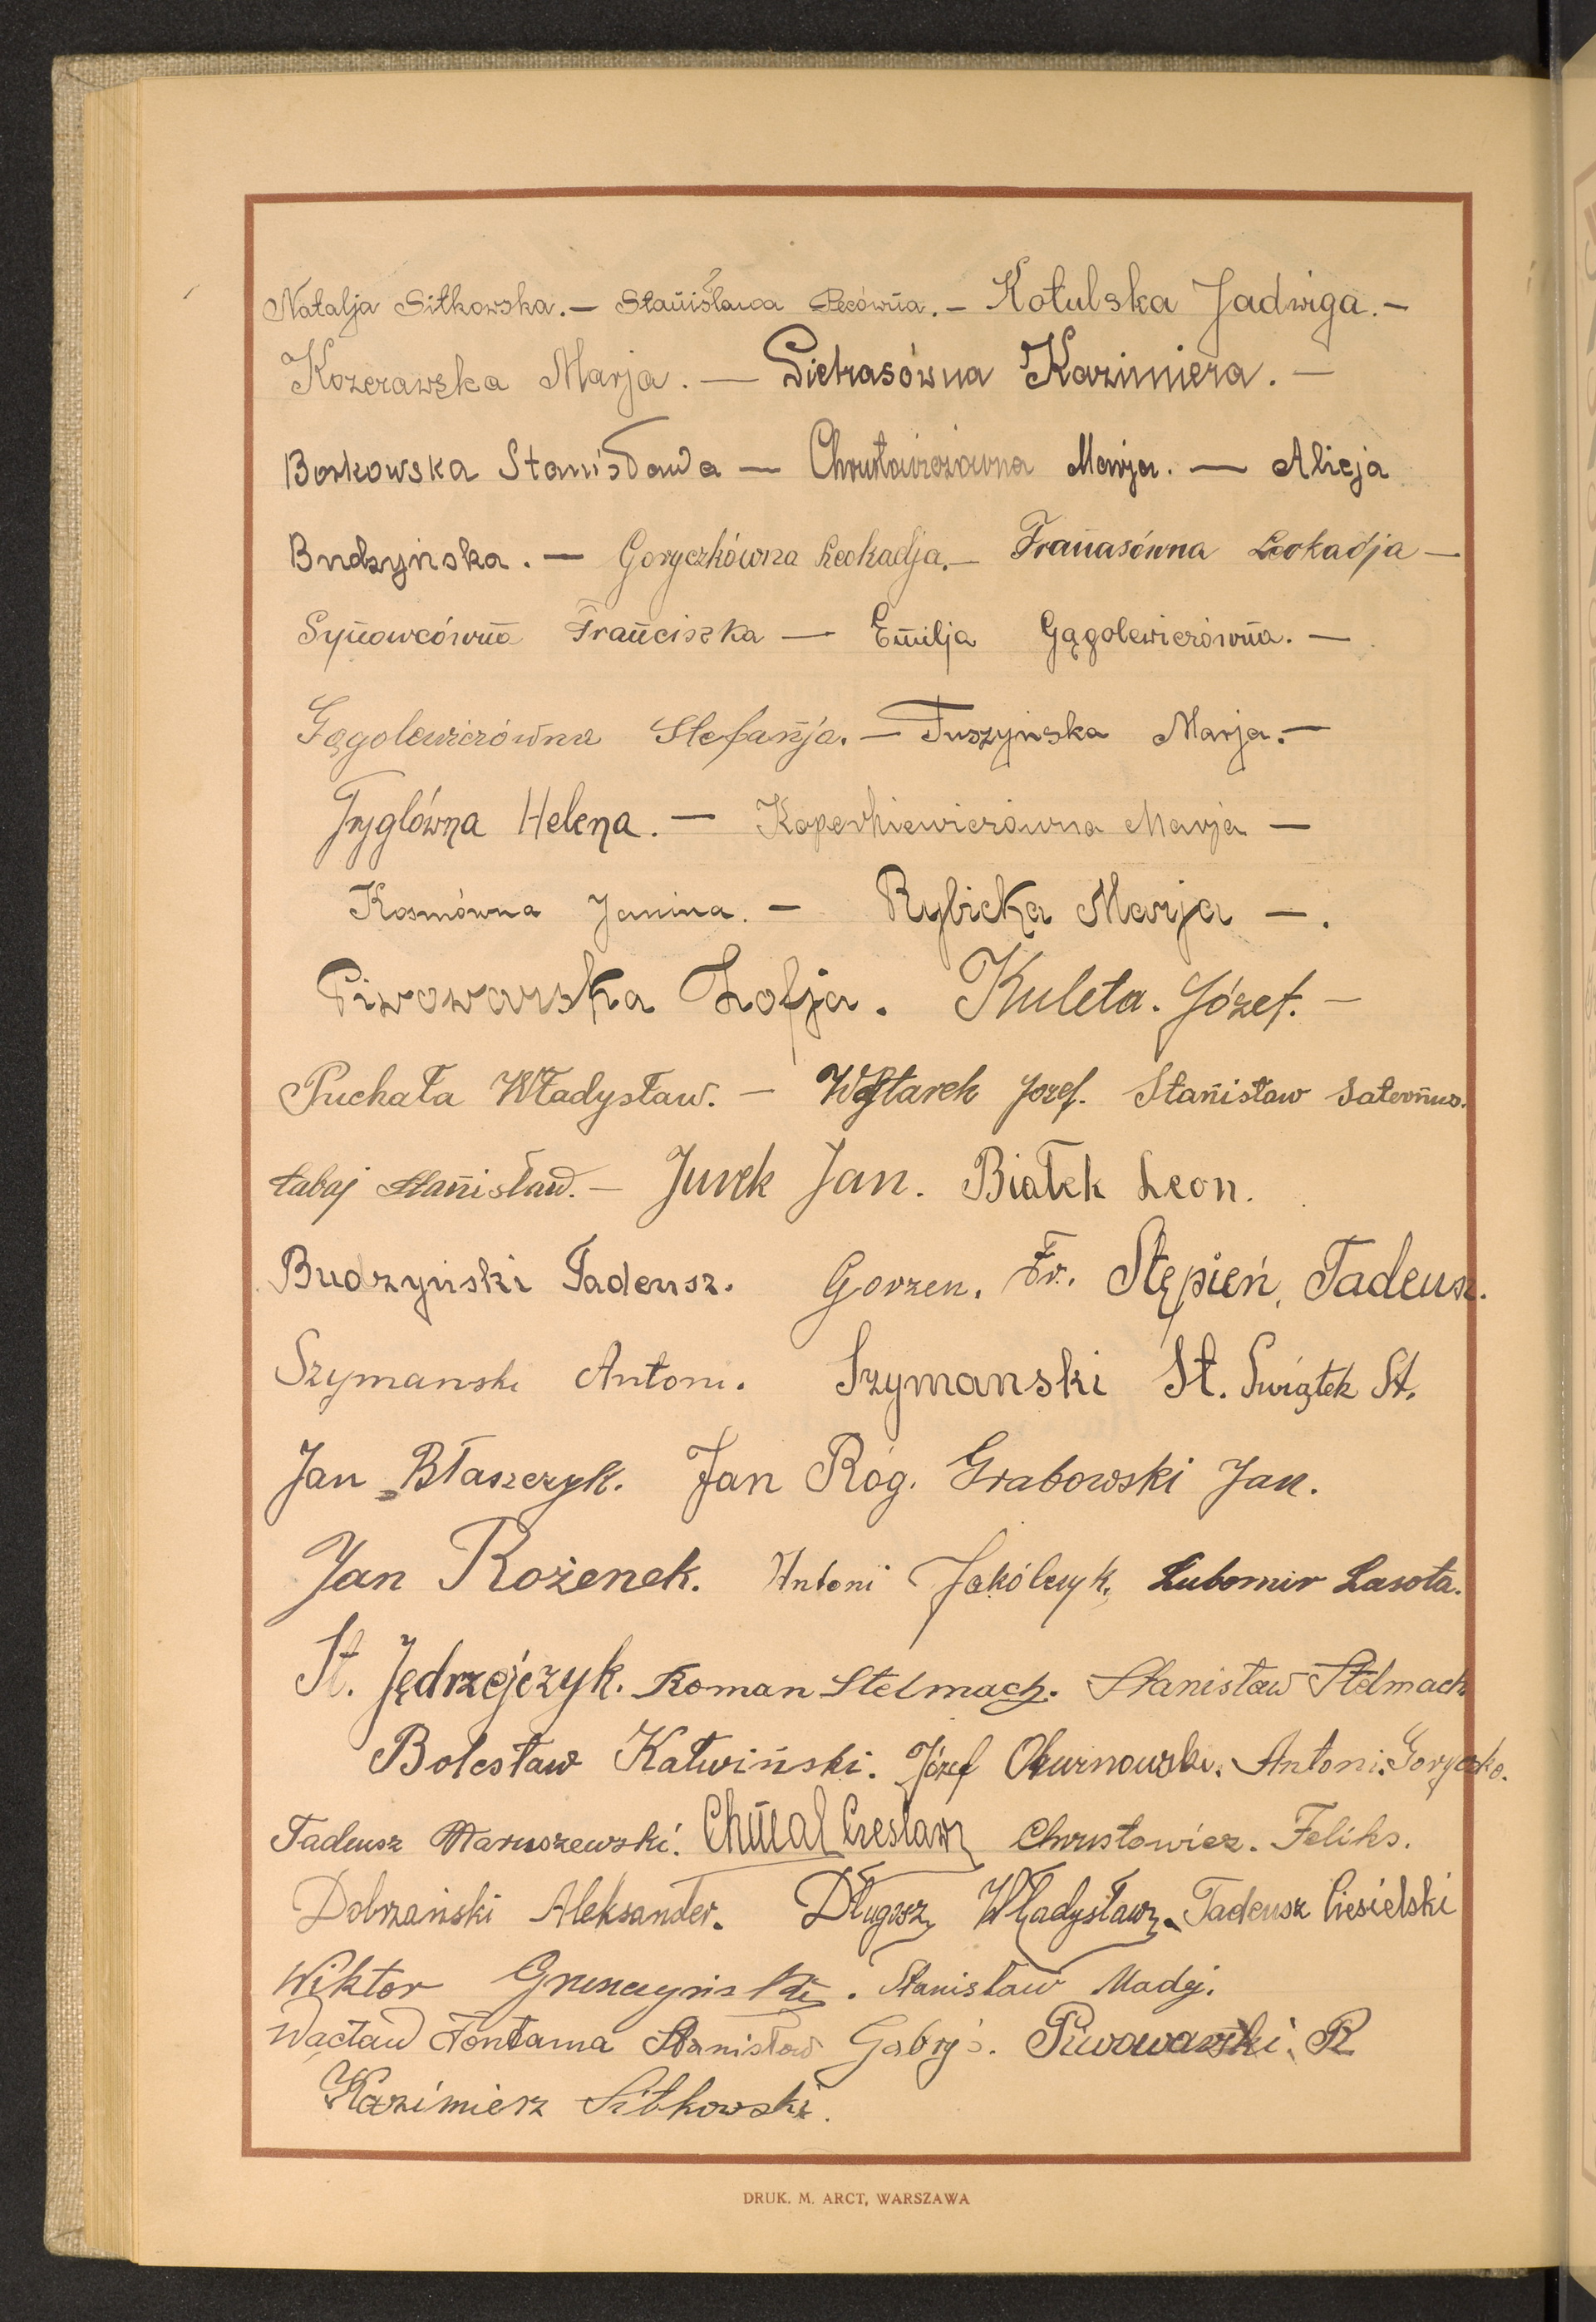 Natalja Sitkowska. — Stanisława Pecówna. — Kotulska Jadwiga. —
Kozerawska Marja. — Pietrasówna Kazimiera. —
Borkowska Stanisława — Marja. — Alicja
Budzyńska. — Goryczkówna Leokadja. — Franasówna Leokadja —
Synowcówna Franciszka — Emilja Gągolewiczówna. —
Gągolewiczówna Stefanja. — Tuszyńska Marja. —
Fryglówna Helena. — Marja —
Kosmówna Janina. — Rybicka Marja —.
Piwowarska Zofja. Kuleta. Józef. —
Puchała Władysław. — Józef. Stanisław Saternus.
Łabaj Stanisław. — Jurek Jan. Białek Leon.
Budzyński Tadeusz. Gorzen. Fr. Stępień, Tadeusz.
Szymanski Antoni. Szymanski St. Świątek St.
Jan Błaszczyk. Jan Róg. Grabowski Jan.
Jan Rożenek. Antoni Jakólczyk. Lubomir Lasota.
St. Jędrzejczyk. Roman Stelmach. Stanisław Stelmach
Bolesław Kałwiński. Józef Antoni. Goryczko.
Tadeusz Maruszewski. Chmal Czesław Chrustowicz. Feliks.
Dobrzański Aleksander. Długosz Władysław. Tadeusz Ciesielski
Wiktor . Stanisław Madej.
Wacław Fontama Stanisław Gabryś. Piwowarski. R
Kazimierz Sitkowski.
DRUK. M. ARCT, WARSZAWA